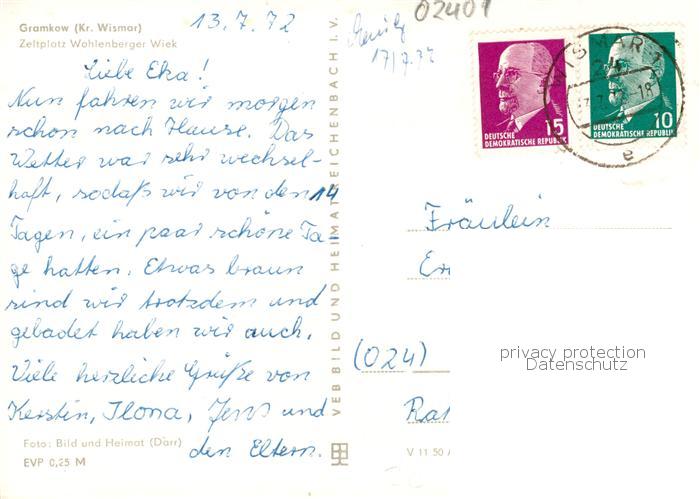 Gramkow (Kr. Wismar)
Zeltplatz Wohlenberger Wiek
13.7.72
Liebe Eka!
Nun fahren wir morgen
schon nach Hause. Das
Wetter war sehr wechsel-
haft, sodaß wir von den 14
Tagen, ein paar schöne Ta
ge hatten. Etwas braun
sind wir trotzdem und
gebadet haben wir auch.
Viele herzliche Grüße von
Kerstin, Ilona, Jens und
den Eltern.
Foto: Bild und Heimat (Darr)
EVP 0,25 M
VEB BILD UND HEIMAT REICHENBACH I. V.
02401
17/7.72
15
DEUTSCHE
DEMOKRATISCHE REPUBLIK
10
DEUTSCHE
DEMOKRATISCHE REPUBLIK
WISMAR 1
24
-18
e
Fräulein
Er
(024)
privacy protection
Datenschutz
Ra
V 11 50